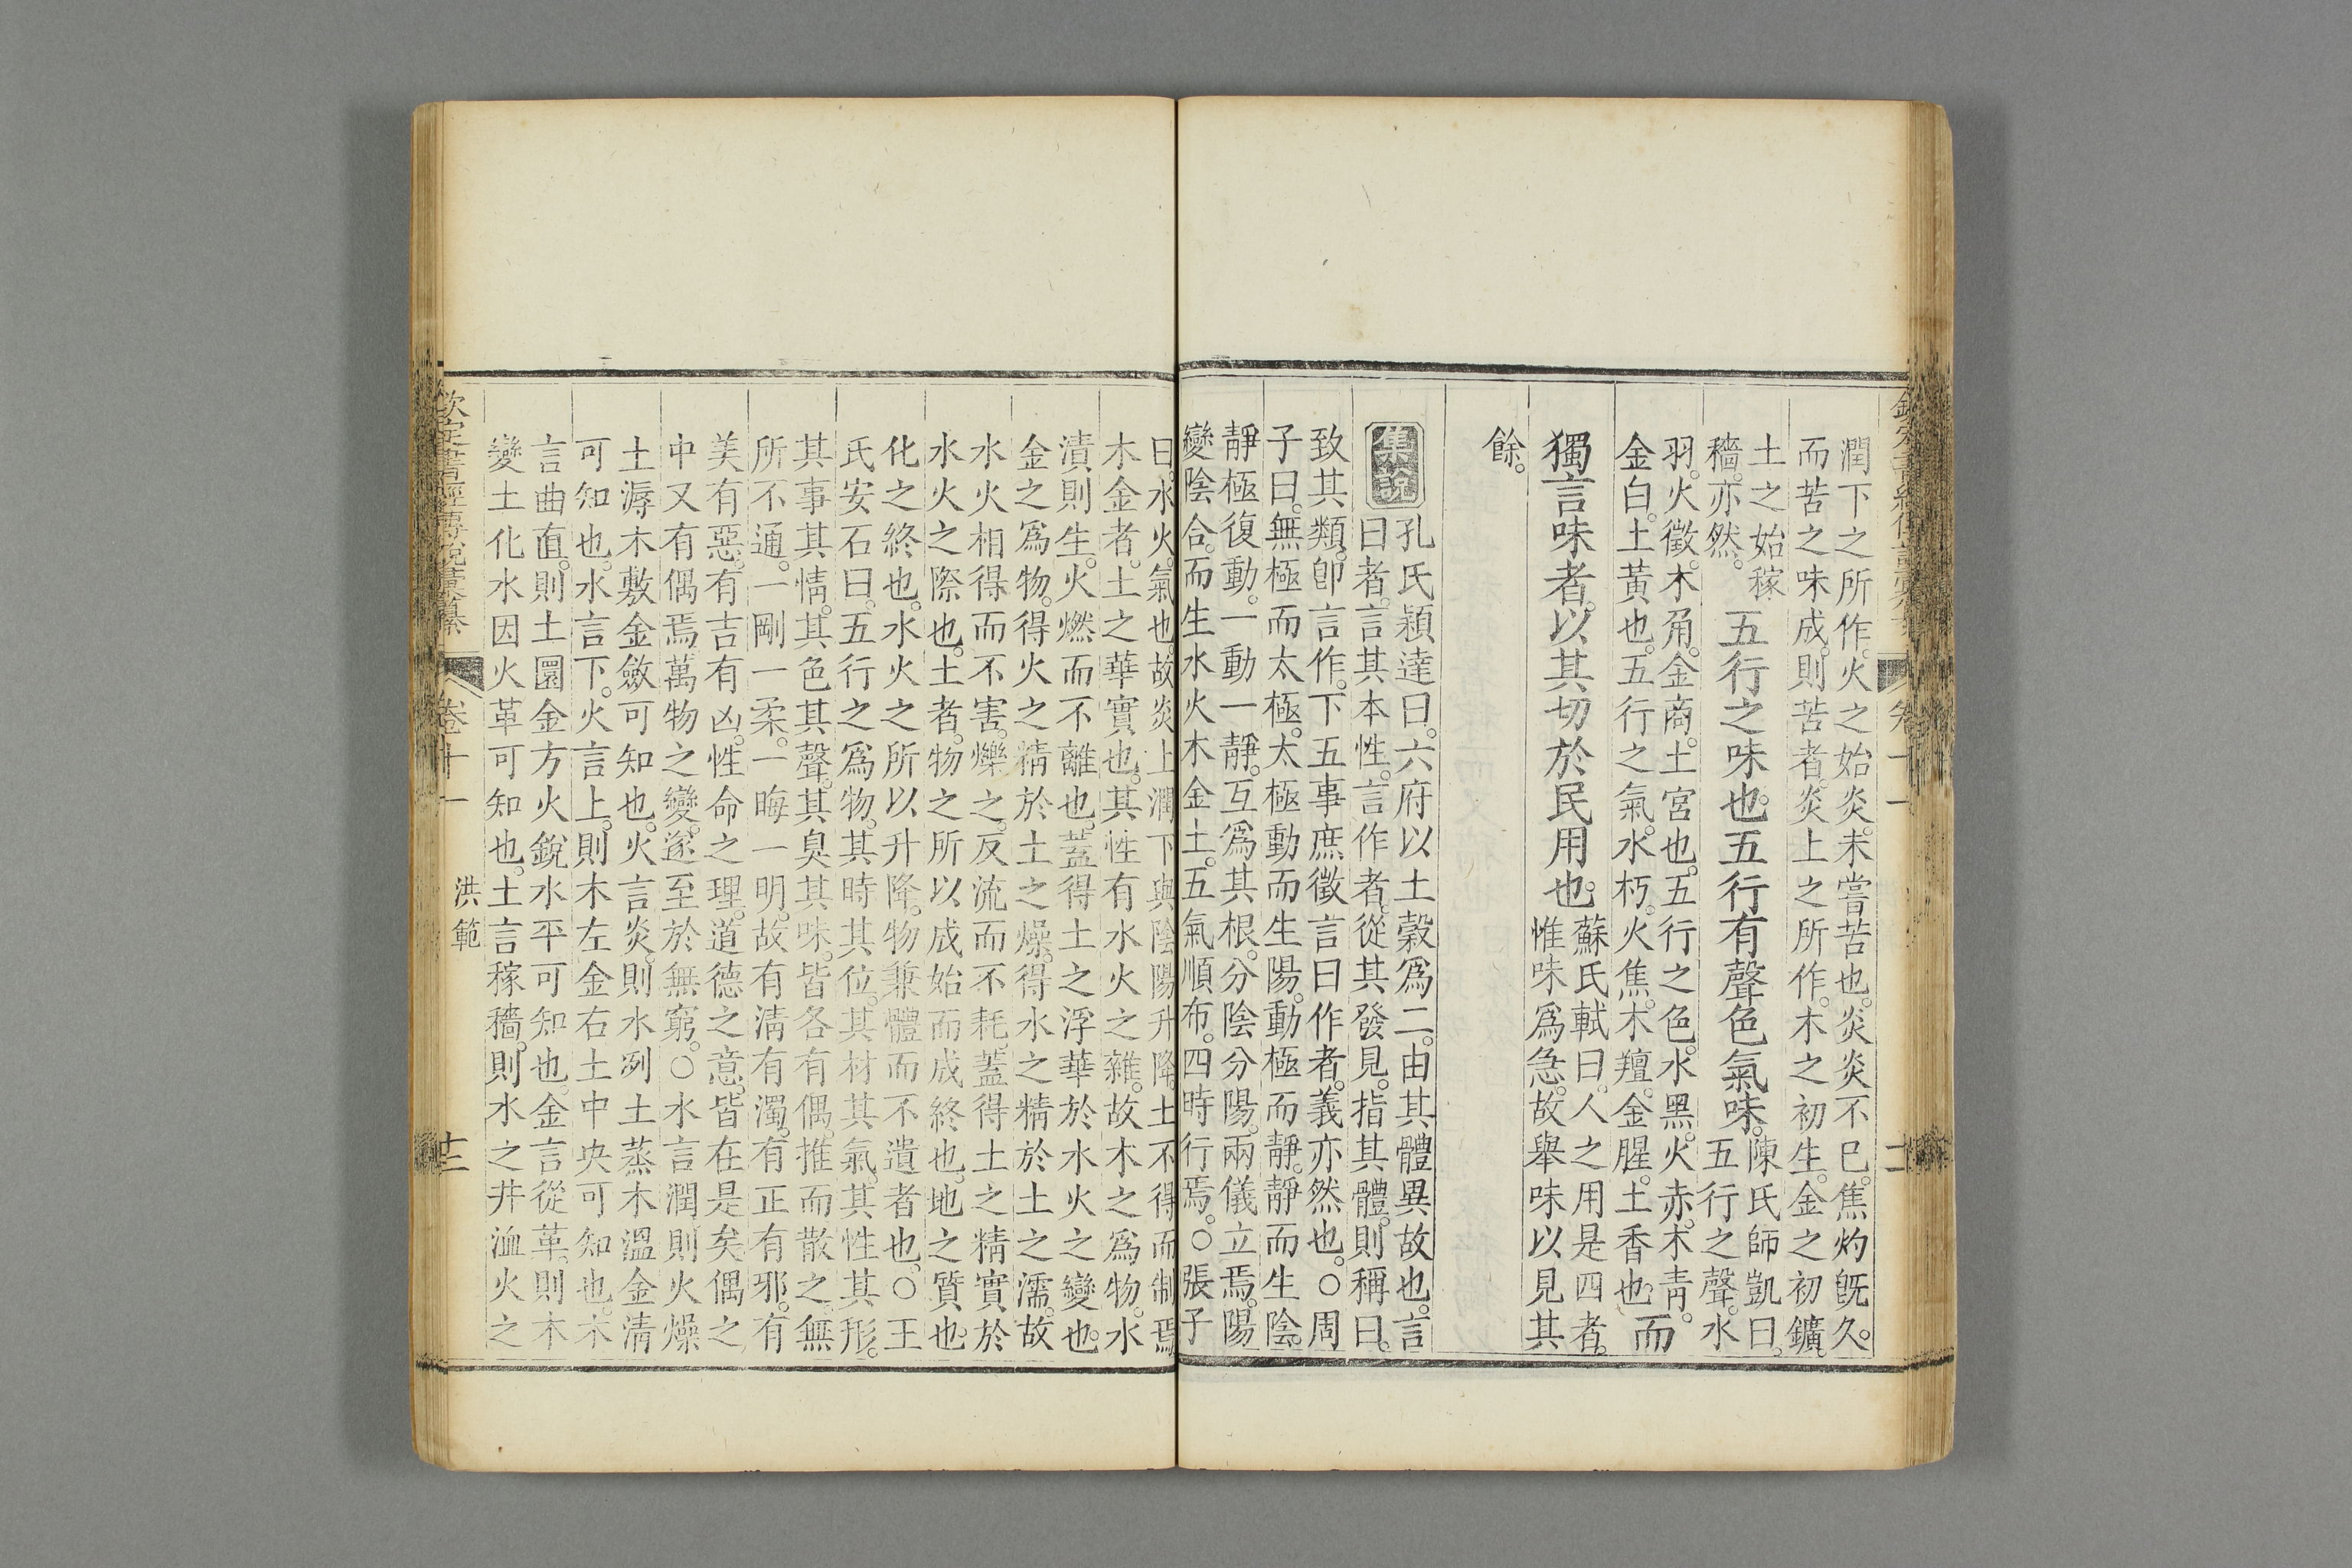 潤下之所作。火之始炎。未嘗苦也。炎炎不已。焦灼旣久。
而苦之味成。則苦者。炎上之所作。木之初生。金之初鑛。
土之始稼
穡。亦然。
五行之味也。五行有聲色氣味。
陳氏師凱曰。
五行之聲。水
羽。火徵。木角。金商。土宮也。五行之色。水黑。火赤。木靑。
金白。土黃也。五行之氣。水朽。火焦。木羶。金腥。土香也。
而
獨言味者。以其切於民用也。
蘇氏軾曰。人之用是四者。
惟味爲急。故舉味以見其
餘。
集說
孔氏穎達曰。六府以土穀爲二。由其體異故也。言
曰者。言其本性。言作者。從其發見。指其體。則稱曰。
致其類。卽言作。下五事庶徵言曰作者。義亦然也。○周
子曰。無極而太極。太極動而生陽。動極而靜。靜而生陰。
靜極復動。一動一靜。互爲其根。分陰分陽。兩儀立焉。陽
變陰合。而生水火木金土。五氣順布。四時行焉。○張子
曰。水火。氣也。故炎上潤下。與陰陽升降。土不得而制焉
木金者。土之華實也。其性有水火之雜。故木之爲物。水
漬則生。火燃而不離也。蓋得土之浮華於水火之變也。
金之爲物。得火之精於土之燥。得水之精於土之濡。故
水火相得而不害。爍之。反流而不耗。蓋得土之精實於
水火之際也。土者。物之所以成始而成終也。地之質也。
化之終也。水火之所以升降。物兼體而不遺者也。○王
氏安石曰。五行之爲物。其時其位。其材其氣。其性其形。
其事其情。其色其聲。其臭其味。皆各有偶。推而散之。無
所不通。一剛一柔。一晦一明。故有淸有濁。有正有邪。有
美有惡。有吉有凶。性命之理。道德之意。皆在是矣。偶之
中又有偶焉。萬物之變。遂至於無窮。○水言潤。則火燥
土溽木敷金斂可知也。火言炎。則水冽土蒸木溫金淸
可知也。水言下。火言上。則木左金右土中央可知也。木
言曲直。則土圜金方火銳水平可知也。金言從革。則木
變土化水因火革可知也。土言稼穡。則水之井洫火之
欽定書經傳說彙纂
卷十一
洪範
十二